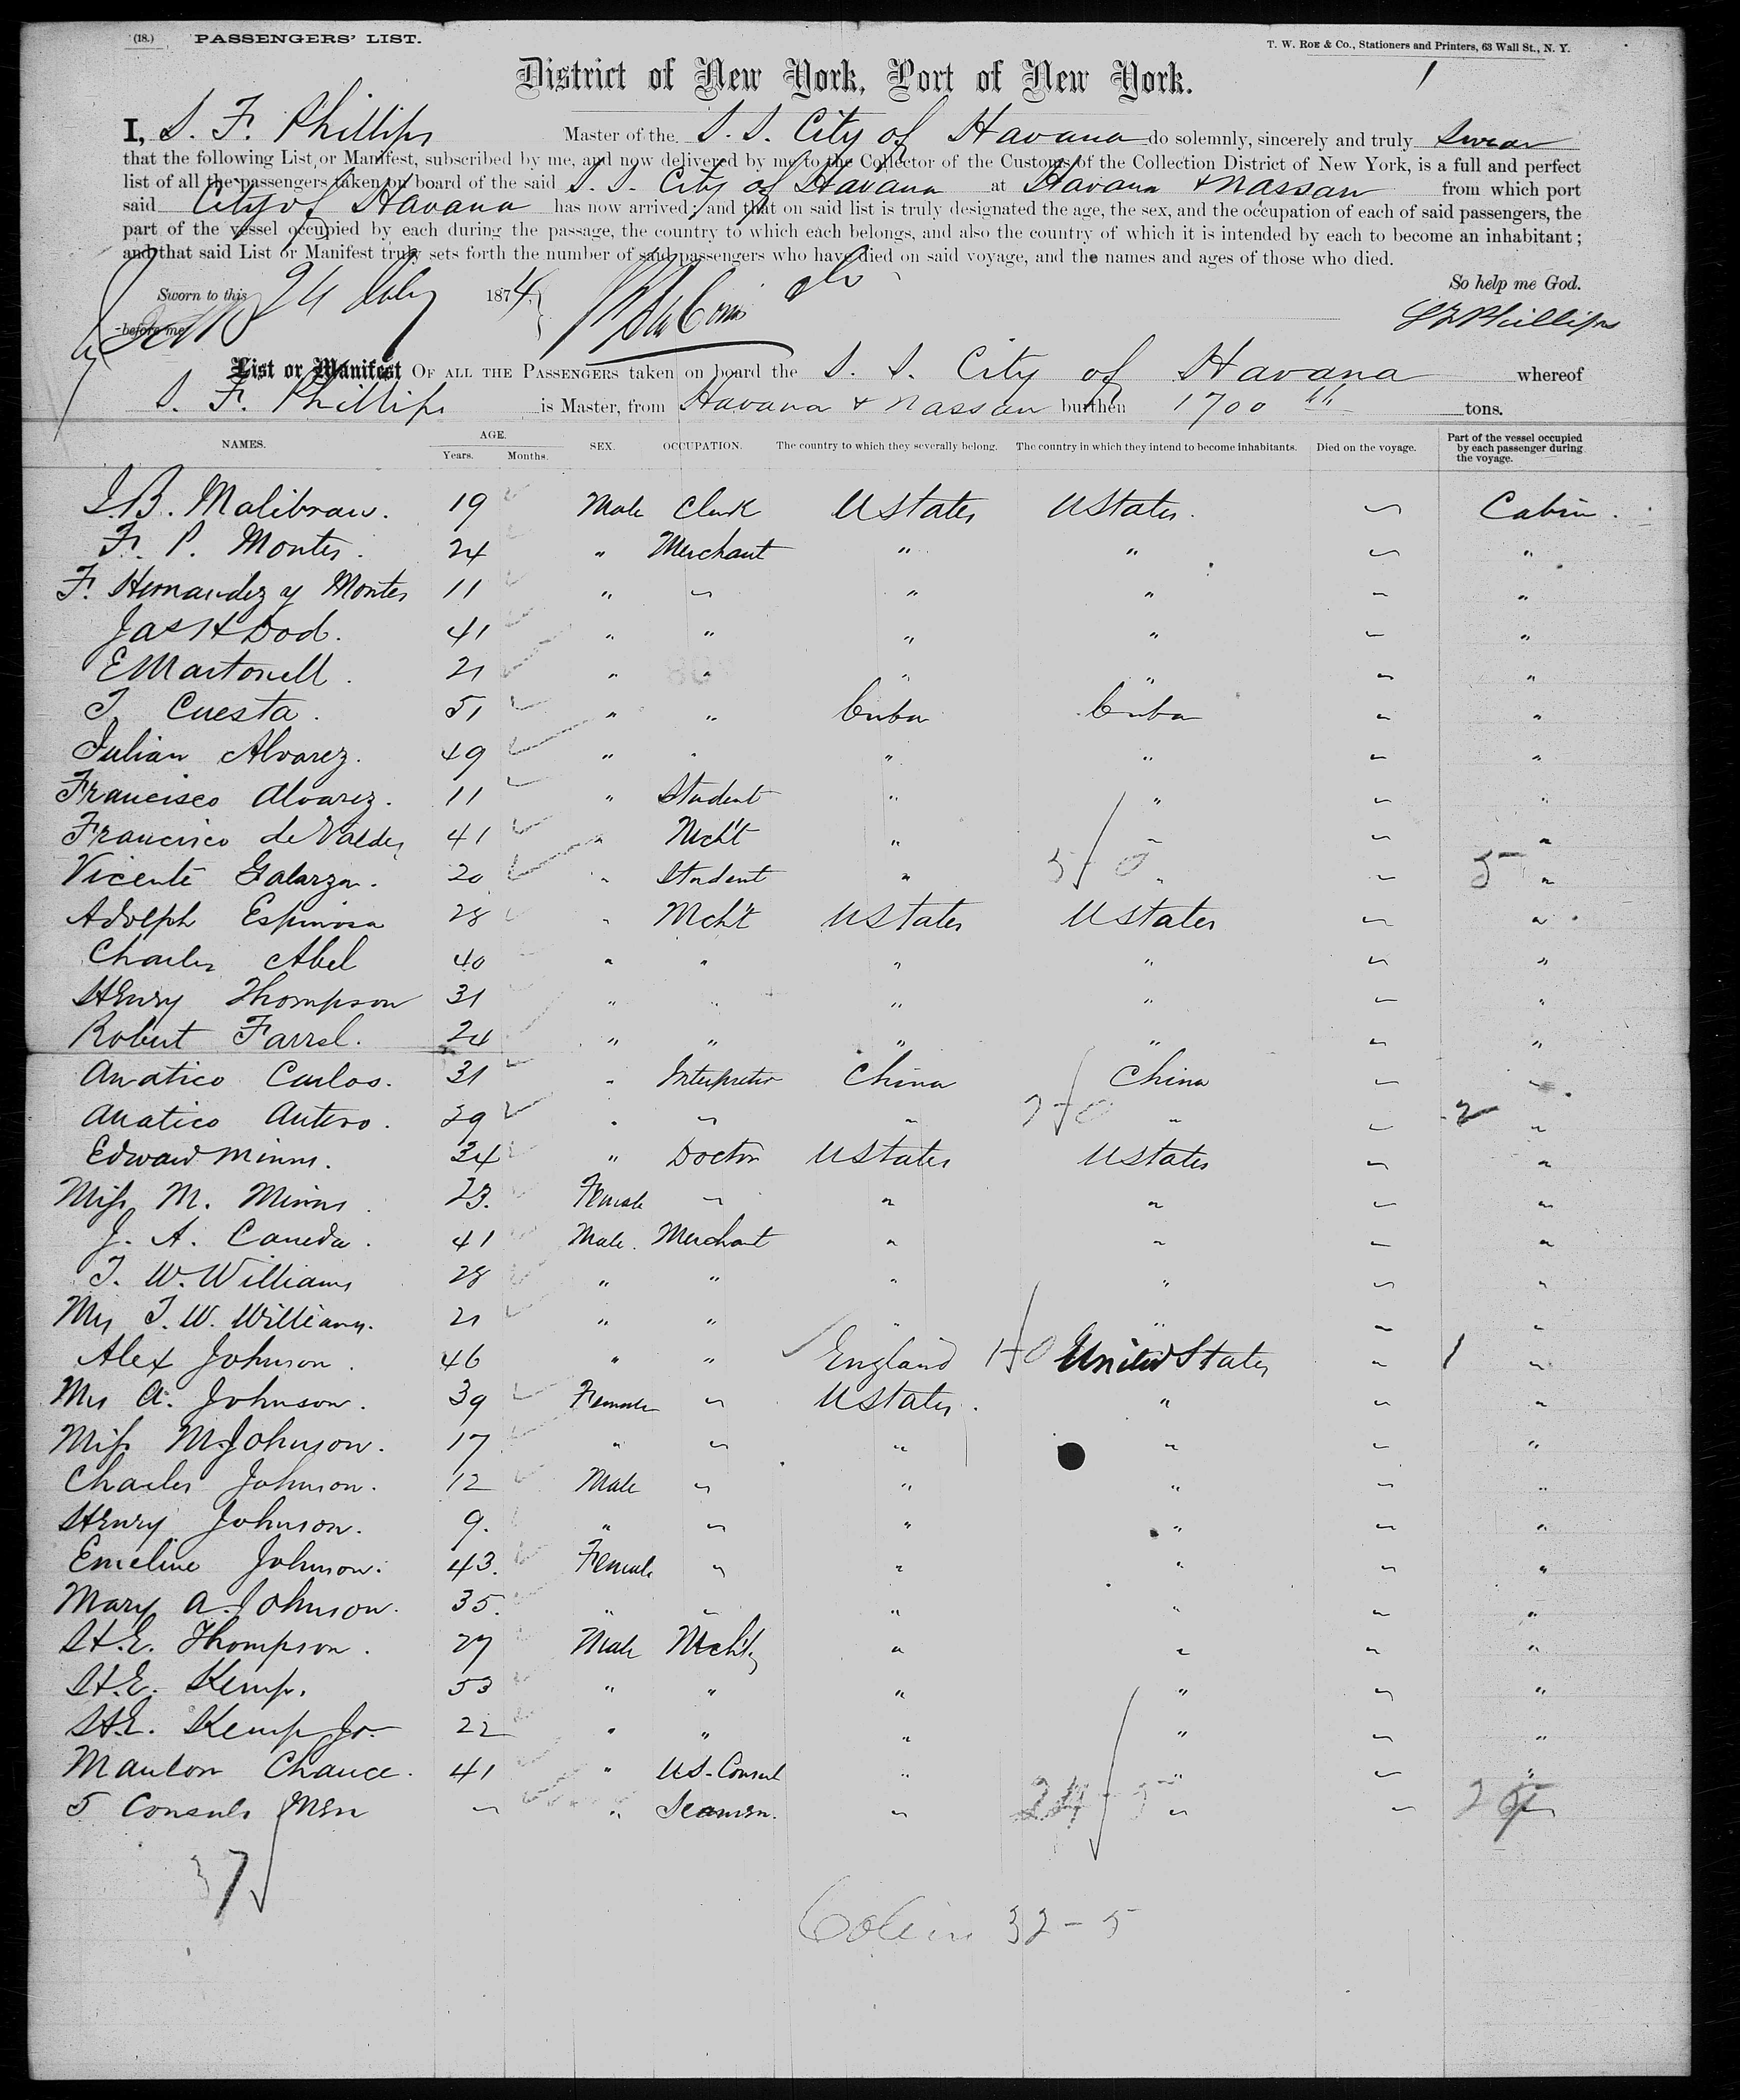 (18.) PASSENGERS' LIST.
T. W. Roe & Co., Stationers and Printers, 63 Wall St., N. Y.
1
District of New York, Port of New York.
I, S. F. Phillips Master of the S. S. City of Havana do solemnly, sincerely and truly swear
that the following List or Manifest, subscribed by me, and now delivered by me to the Collector of the Customs of the Collection District of New York, is a full and perfect
list of all the passengers taken on board of the said S. S. City of Havana at Havana & Nassau from which port
said City of Havana has now arrived; and that on said list is truly designated the age, the sex, and the occupation of each of said passengers, the
part of the vessel occupied by each during the passage, the country to which each belongs, and also the country of which it is intended by each to become an inhabitant;
and that said List or Manifest truly sets forth the number of said passengers who have died on said voyage, and the names and ages of those who died.
So help me God.
Sworn to this 24 July 1874
before me
S F Phillips
List or Manifest OF ALL THE PASSENGERS taken on board the S. S. City of Havana whereof
S. F. Phillips is Master, from Havana & Nassau burthen 1700 tons.
NAMES. AGE. Years. Months. SEX. OCCUPATION. The country to which they severally belong. The country in which they intend to become inhabitants. Died on the voyage. Part of the vessel occupied by each passenger during the voyage.
J. B. Malibran. 19 Male Clerk U States U States. - Cabin.
F. P. Montes. 24 " Merchant " " - "
F. Hernandez y Montes 11 " - " " - "
Jas H Dod. 41 " " " " - "
E Martonell. 21 " " " " - "
T Cuesta. 51 " " Cuba Cuba - "
Julian Alvarez. 49 " " " " - "
Francisco Alvarez. 11 " Student " " - "
Francisco de Valdes 41 " Mcht " " - "
Vicente Galarza. 20 " Student " 5-0 " - 5 "
Adolph Espinosa 28 " Mcht U States U States - "
Charles Abel 40 " " " " - "
Henry Thompson 31 " " " " - "
Robert Farrel. 24 " " " " - "
Anatico Carlos. 31 " Interpreter China China - "
Anatico Antero. 29 " - " 2-0 " - 2 "
Edward Minns. 34 " Doctor U States U States - "
Miss M. Minns 23. Female - " " - "
J. A. Caneda. 41 Male. Merchant " " - "
T. W. Williams 28 " " " " - "
Mrs T. W. Williams. 21 " " " " - "
Alex Johnson. 46 " " England 1-0 United States - 1 "
Mrs A. Johnson. 39 Female - U States. " - "
Miss M. Johnson. 17 " - " " - "
Charles Johnson. 12 Male - " " - "
Henry Johnson. 9. " - " " - "
Emeline Johnson. 43. Female - " " - "
Mary A. Johnson. 35. " - " " - "
H. E. Thompson. 27 Male Mcht. " " - "
H. E. Kemp. 53 " " " " - "
H. E. Kemp Jr. 22 " " " " - "
Manlon Chance. 41 " U S. Consul " " - "
5 Consuls Men - " Seamen. " 24-5 " -
37
32-5